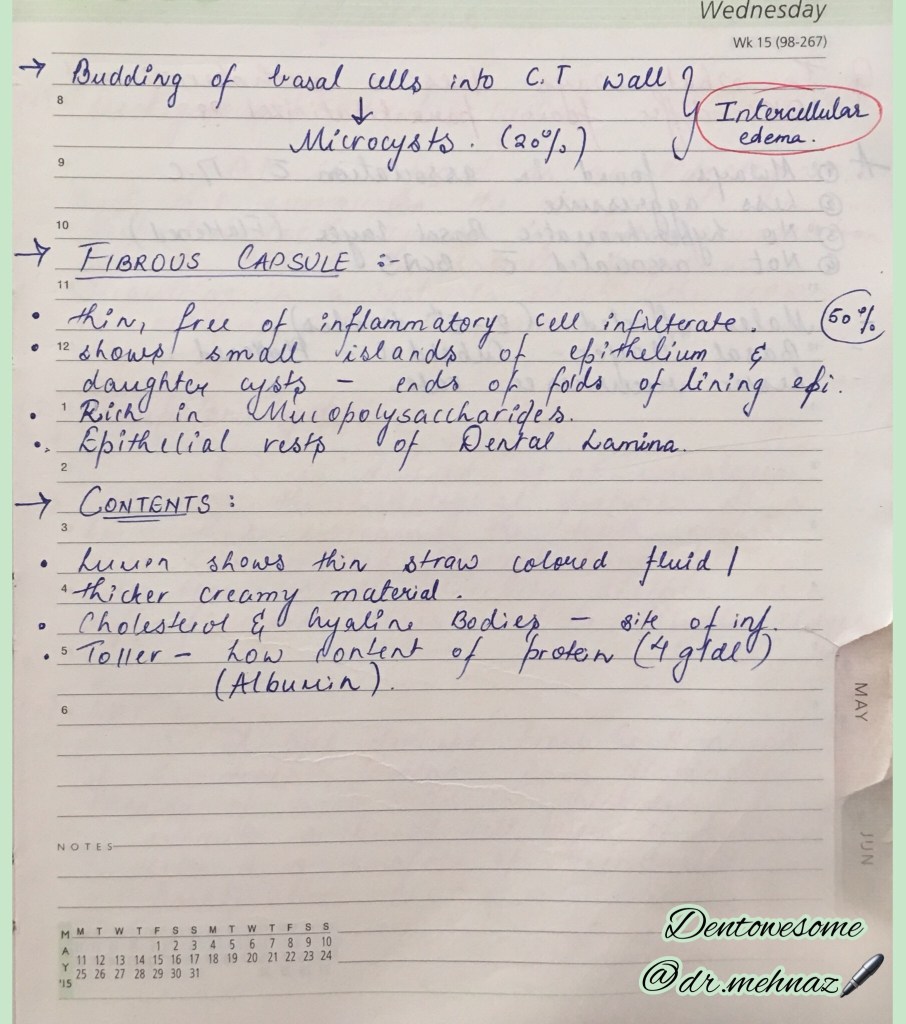 Wednesday
Wk 15 (98-267)
→ Budding of basal cells into C.T wall
Intercellular
edema.
8
↓
Microcysts. (20%)
9
10
→ FIBROUS CAPSULE :-
11
• thin, free of inflammatory cell infilterate. 50%
• 12 shows small islands of epithelium &
daughter cysts – ends of folds of lining epi.
• 1 Rich in Mucopolysaccharides.
• Epithelial rests of Dental Lamina.
2
→ CONTENTS :
3
• Lumen shows thin straw colored fluid /
4 thicker creamy material.
• Cholesterol & hyaline Bodies – site of inf.
• 5 Toller – Low content of protein (4 g/dl)
(Albumin).
6
MAY
JUN
NOTES
MAY '15
M T W T F S S M T W T F S S
1 2 3 4 5 6 7 8 9 10
11 12 13 14 15 16 17 18 19 20 21 22 23 24
25 26 27 28 29 30 31
Dentowesome
@dr.mehnaz